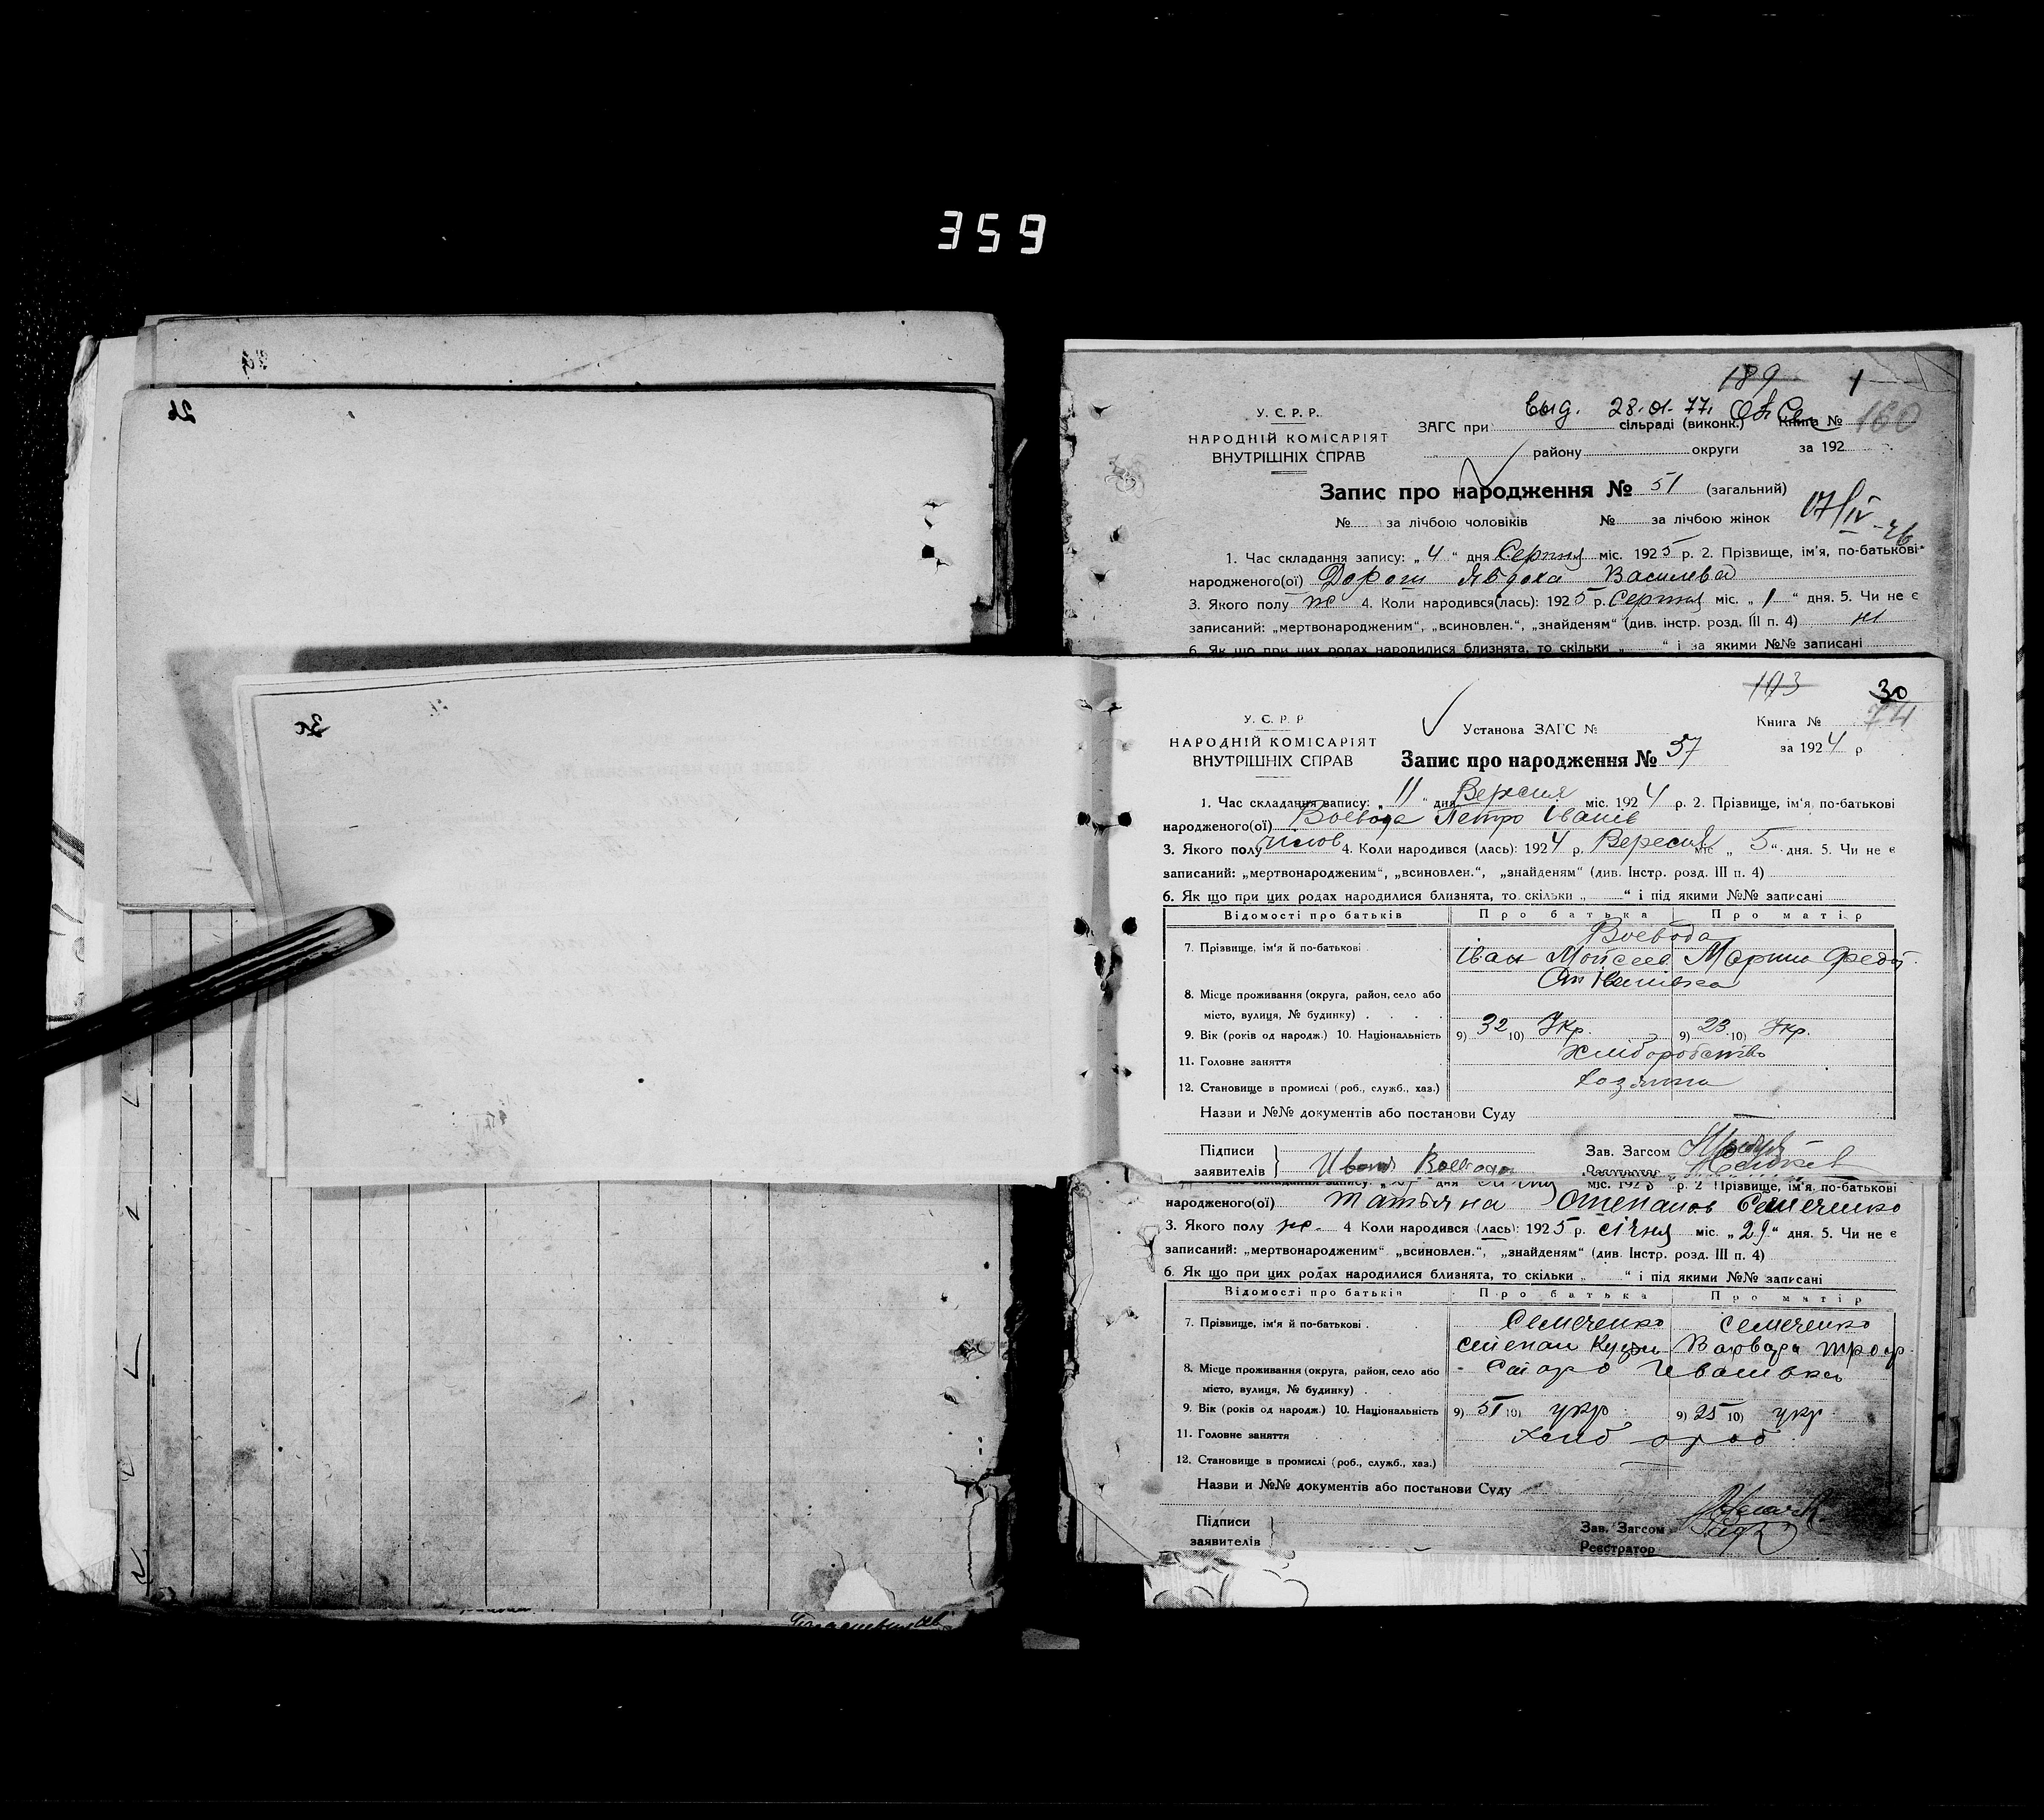 359
26
189 1
выд. 28.01.77.
У. С. Р. Р.
НАРОДНІЙ КОМІСАРІЯТ
ВНУТРІШНІХ СПРАВ
ЗАГС при сільраді (виконк.) Книга № 160
району округи за 192
Запис про народження № 51 (загальний)
№ за лічбою чоловіків № за лічбою жінок
17/IV-46
1. Час складання запису: „ 4 “ дня Серпня міс. 1925 р. 2. Прізвище, ім'я, по-батькові
народженого(ої) Дорош Явдоха Василева
3. Якого полу ж 4. Коли народився(лась): 1925 р. Серпня міс. „ 1 “ дня. 5. Чи не є
записаний: „мертвонародженим“, „всиновлен.“, „знайденям“ (див. інстр. розд. III п. 4) ні
6. Як що при цих родах народилися близнята, то скільки „ “ і за якими №№ записані
30
193 30
У. С. Р. Р
НАРОДНІЙ КОМІСАРІЯТ
ВНУТРІШНІХ СПРАВ
Установа ЗАГС № Книга № 74
за 1924 р
Запис про народження № 37
1. Час складання запису: „ 11 “ дня Версня міс. 1924 р. 2. Прізвище, ім'я, по-батькові
народженого(ої) Воевода Петро Іванів
3. Якого полу чилов 4. Коли народився (лась): 1924 р. Вересня міс „ 5 “ дня. 5. Чи не є
записаний: „мертвонародженим“, „всиновлен.“, „знайденям“ (див. Інстр. розд. III п. 4)
6. Як що при цих родах народилися близнята, то скільки „ “ і під якими №№ записані
Відомості про батьків Про батька Про матір
Воевода
7. Прізвище, ім'я й по-батькові Іван Мойсеев Марина Федот
8. Місце проживання (округа, район, село або Ст Івашівка
місто, вулиця, № будинку)
9. Вік (років од народж.) 10. Національність 9) 32 10) Укр. 9) 23 10) Укр.
11. Головне заняття Хліборобство
12. Становище в промислі (роб., служб., хаз.) хозяина
Назви и №№ документів або постанови Суду
Підписи Зав. Загсом
заявителів Иван Воевода Реєстратор
1. Час складання запису: дня січня міс. 1925 р. 2 Прізвище, ім'я, по-батькові
народженого(ої) Татьяна Степанов Семеченко
3. Якого полу ж. 4 Коли народився (лась): 1925 р. січня міс. „ 29 “ дня. 5. Чи не є
записаний: „мертвонародженим“ „всиновлен.“, „знайденям“ (див. Інстр. розд. III п. 4)
6. Як що при цих родах народилися близнята, то скільки „ “ і під якими №№ записані
Відомості про батьків Про батька Про матір
7. Прізвище, ім'я й по-батькові Семеченко Семеченко
Степан Кузьм Варвара Троф
8. Місце проживання (округа, район, село або Старо Ивашовка
місто, вулиця, № будинку)
9. Вік (років од народж.) 10. Національність 9) 51 10) укр 9) 25 10) укр
11. Головне заняття хлібороб
12. Становище в промислі (роб., служб., хаз.)
Назви и №№ документів або постанови Суду
Підписи
заявителів
Зав. Загсом
Реєстратор